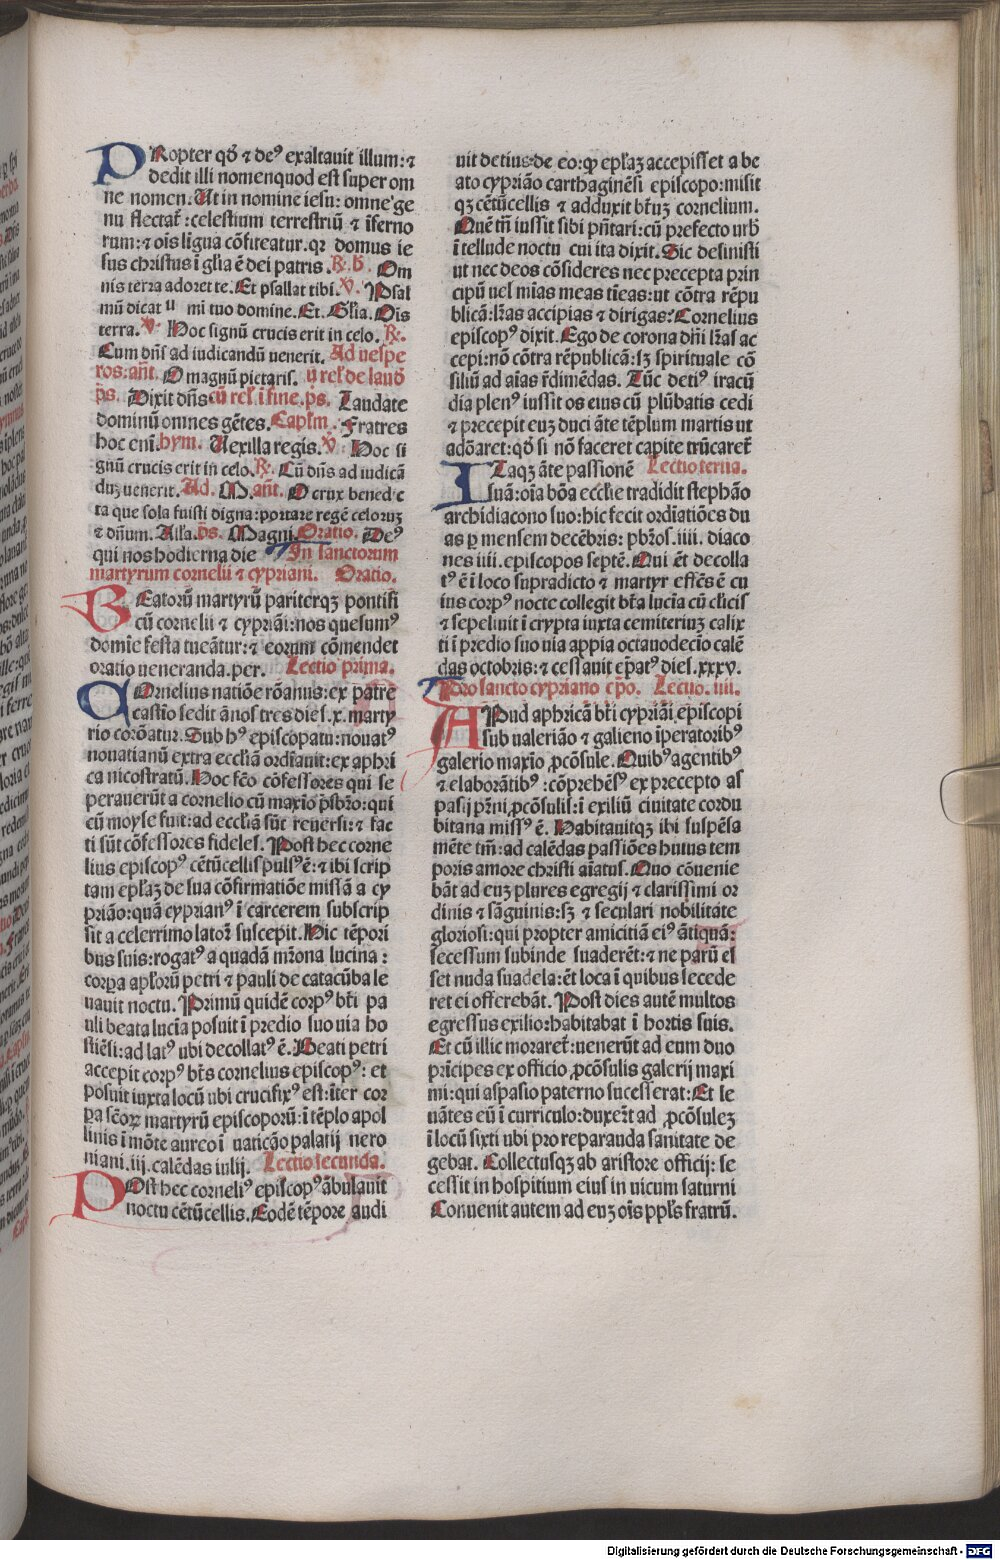 PRopter qđ ⁊ deꝰ exaltauit illum:⁊
dedit illi nomenquod est super om
ne nomen. Ut in nomine iesu: omne ge
nu flectat᷑: celestium terrestriū ⁊ īferno
rum:⁊ oīs līgua cōfiteatur.qꝛ domus ie
sus christus ī glīa ē dei patris. R̷. b̄. Om
nis terra adoret te. Et psallat tibi. v̷. Psal
mū dicat u mi tuo domine. Et. Glīa. Oīs
terra. v̷ Hoc signū crucis erit in celo. R̷.
Cum dn̄s ad iudicandū uenerit. Ad uespe
ros. an̄t. O magnū pietatis. ū rel̄ de laud
p̄s. Dixit dn̄s cū rel̄ ī fine. p̄s. Laudate
dominū omnes gētes. Capl̄m. Fratres
hoc eni. hym. Uexilla regis. v̷ Hoc si
gnū crucis erit in celo. R̷. Cū dn̄s ad iudicā
duꝫ uenerit. Ad. M. an̄t. O crux bened c
ta que sola fuisti digna: portare regē celoruꝫ
⁊ dn̄um. Alla. p̄s. Magni. Oratio. Deꝰ
qui nos hodierna die In sanctorum
martyrum cornelii ⁊ cypriani. Oratio.
BEatorū martyrū pariterqꝫ pontifi
cū cornelii ⁊ cypriāi: nos quesumꝰ
domīe festa tueātur: ⁊ eorum cōmendet
oratio ueneranda. per. Lectio prima.
COrnelius natiōe rōanus: ex patre
castīo sedit ānos tres dies. x. marty
rio corōatur. Sub hꝰ episcopatu: nouatꝰ
nouatianū extra eccliā ordīauit: ex aphri
ca nicostratū. Hoc fcō cōfessores qui se
perauerūt a cornelio cū maxīo p̄sbr̄o: qui
cū moyse fuit: ad eccliā sūt reuersi: ⁊ fac
ti sūt cōfessores fideles. Post hec corne
lius episcopꝰ cētūcellis pulsꝰ ē: ⁊ ibi scrip
tam ep̄laꝫ de sua cōfirmatiōe missā a cy
priāo: quā cyprianꝰ ī carcerem subscrip
sit a celerrimo latoꝛ suscepit. Hic tēpori
bus suis: rogatꝰ a quadā mr̄ona lucina:
corpa ap̄lorū petri ⁊ pauli de catacūba le
uauit noctu. Primū quidē corpꝰ bt̄i pa
uli beata lucīa posuit ī predio suo uia ho
stiēsi: ad latꝰ ubi decollatꝰ ē. Beati petri
accepit corpꝰ bt̄s cornelius episcopꝰ: et
posuit iuxta locū ubi crucifixꝰ est: īter cor
pa sc̄oꝝ martyrū episcoporū: ī tēplo apol
linis ī mōte aureo ī uaticāo palatij nero
niani. iij. calēdas iulij. Lectio secunda.
POst hec corneliꝰ epīscopꝰ ābulauit
noctu cētūcellis. Eodē tēpore audi
uit detius de eo: qꝙ ep̄laꝫ accepisset a be
ato cypriāo carthaginēsi episcopo: misit
qꝫ cētūcellis ⁊ adduxit bt̄uꝫ cornelium.
Quē tn̄ iussit sibi pn̄tari: cū prefecto urb̄
ī tellude noctu cui ita dixit. Sic definisti
ut nec deos cōsideres nec precepta prin
cipū uel mīas meas tīeas: ut cōtra rēpu
blicā: lr̄as accipias ⁊ dirigas? Cornelius
episcopꝰ dixit. Ego de corona dn̄i lr̄as ac
cepi: nō cōtra rēpublicā: sꝫ spirituale cō
siliū ad aīas r̄dimēdas. Tūc detiꝰ iracū
dia plenꝰ iussit os eius cū plūbatis cedi
⁊ precepit euꝫ duci āte tēplum martis ut
adōaret: qđ si nō faceret capite trūcaret᷑
ITaqꝫ āte passionē Lectio terna.
suā: oīa bōa eccl̄ie tradidit stephāo
archidiacono suo: hic fecit ordīatiōes du
as ꝑ mensem decēbris: pbr̄os. iiii. diaco
nes iiii. episcopos septē. Qui ēt decolla
tꝰ ē ī loco supradicto ⁊ martyr effēs ē cu
ius corpꝰ nocte collegit bt̄a lucīa cū cl̄icis
⁊ sepeliuit ī crypta iuxta cemiteriuꝫ calix
ti ī predio suo uia appia octauodecīo calē
das octobris: ⁊ cessauit ep̄atꝰ dies. xxxv.
Pro sancto cypriano ep̄o. Lectio. iiii.
APud aphricā bt̄i cypriāi episcopi
sub ualeriāo ⁊ galieno īperatoribꝰ
galerio maxīo ꝓcōsule. Quibꝰ agentibꝰ
⁊ elaborātibꝰ: cōprehēsꝰ ex precepto as
pasij pr̄ni ꝓcōsulis: ī exiliū ciuitate cordu
bitana missꝰ ē. Habitauitqꝫ ibi suspēsa
mēte tn̄: ad calēdas passiōes huius tem
poris amore christi aīatus. Quo cōuenie
bāt ad euꝫ plures egregij ⁊ clarissimi or
dinis ⁊ sāguinis: sꝫ ⁊ seculari nobilitate
gloriosi: qui propter amicitiā eiꝰ ātiquā:
secessum subinde suaderēt: ⁊ ne parū es
set nuda suadela: ēt loca ī quibus secede
ret ei offerebāt. Post dies autē multos
egressus exilio: habitabat ī hortis suis.
Et cū illic moraret᷑: uenerūt ad eum duo
prīcipes ex officio ꝓcōsulis galerij maxi
mi: qui aspasio paterno successerat: Et le
uātes eū ī curriculo: duxer̄t ad ꝓcōsuleꝫ
ī locū sixti ubi pro reparanda sanitate de
gebat. Collectusqꝫ ab aristore officij: se
cessit in hospitium eius in uicum saturni
Conuenit autem ad euꝫ oīs ppl̄s fratrū.
Digitalisierung gefördert durch die Deutsche Forschungsgemeinschaft - DFG